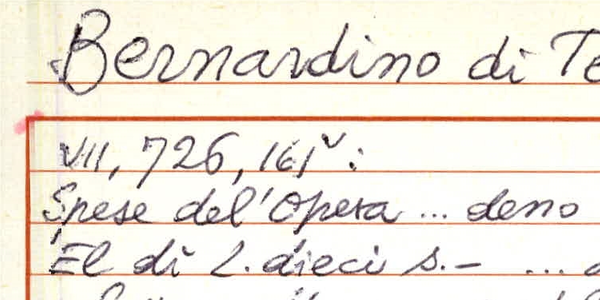 Bernardino di Te
VII, 726, 161v:
Spese del'Opera ... deno
El di L. dieci s.– ...